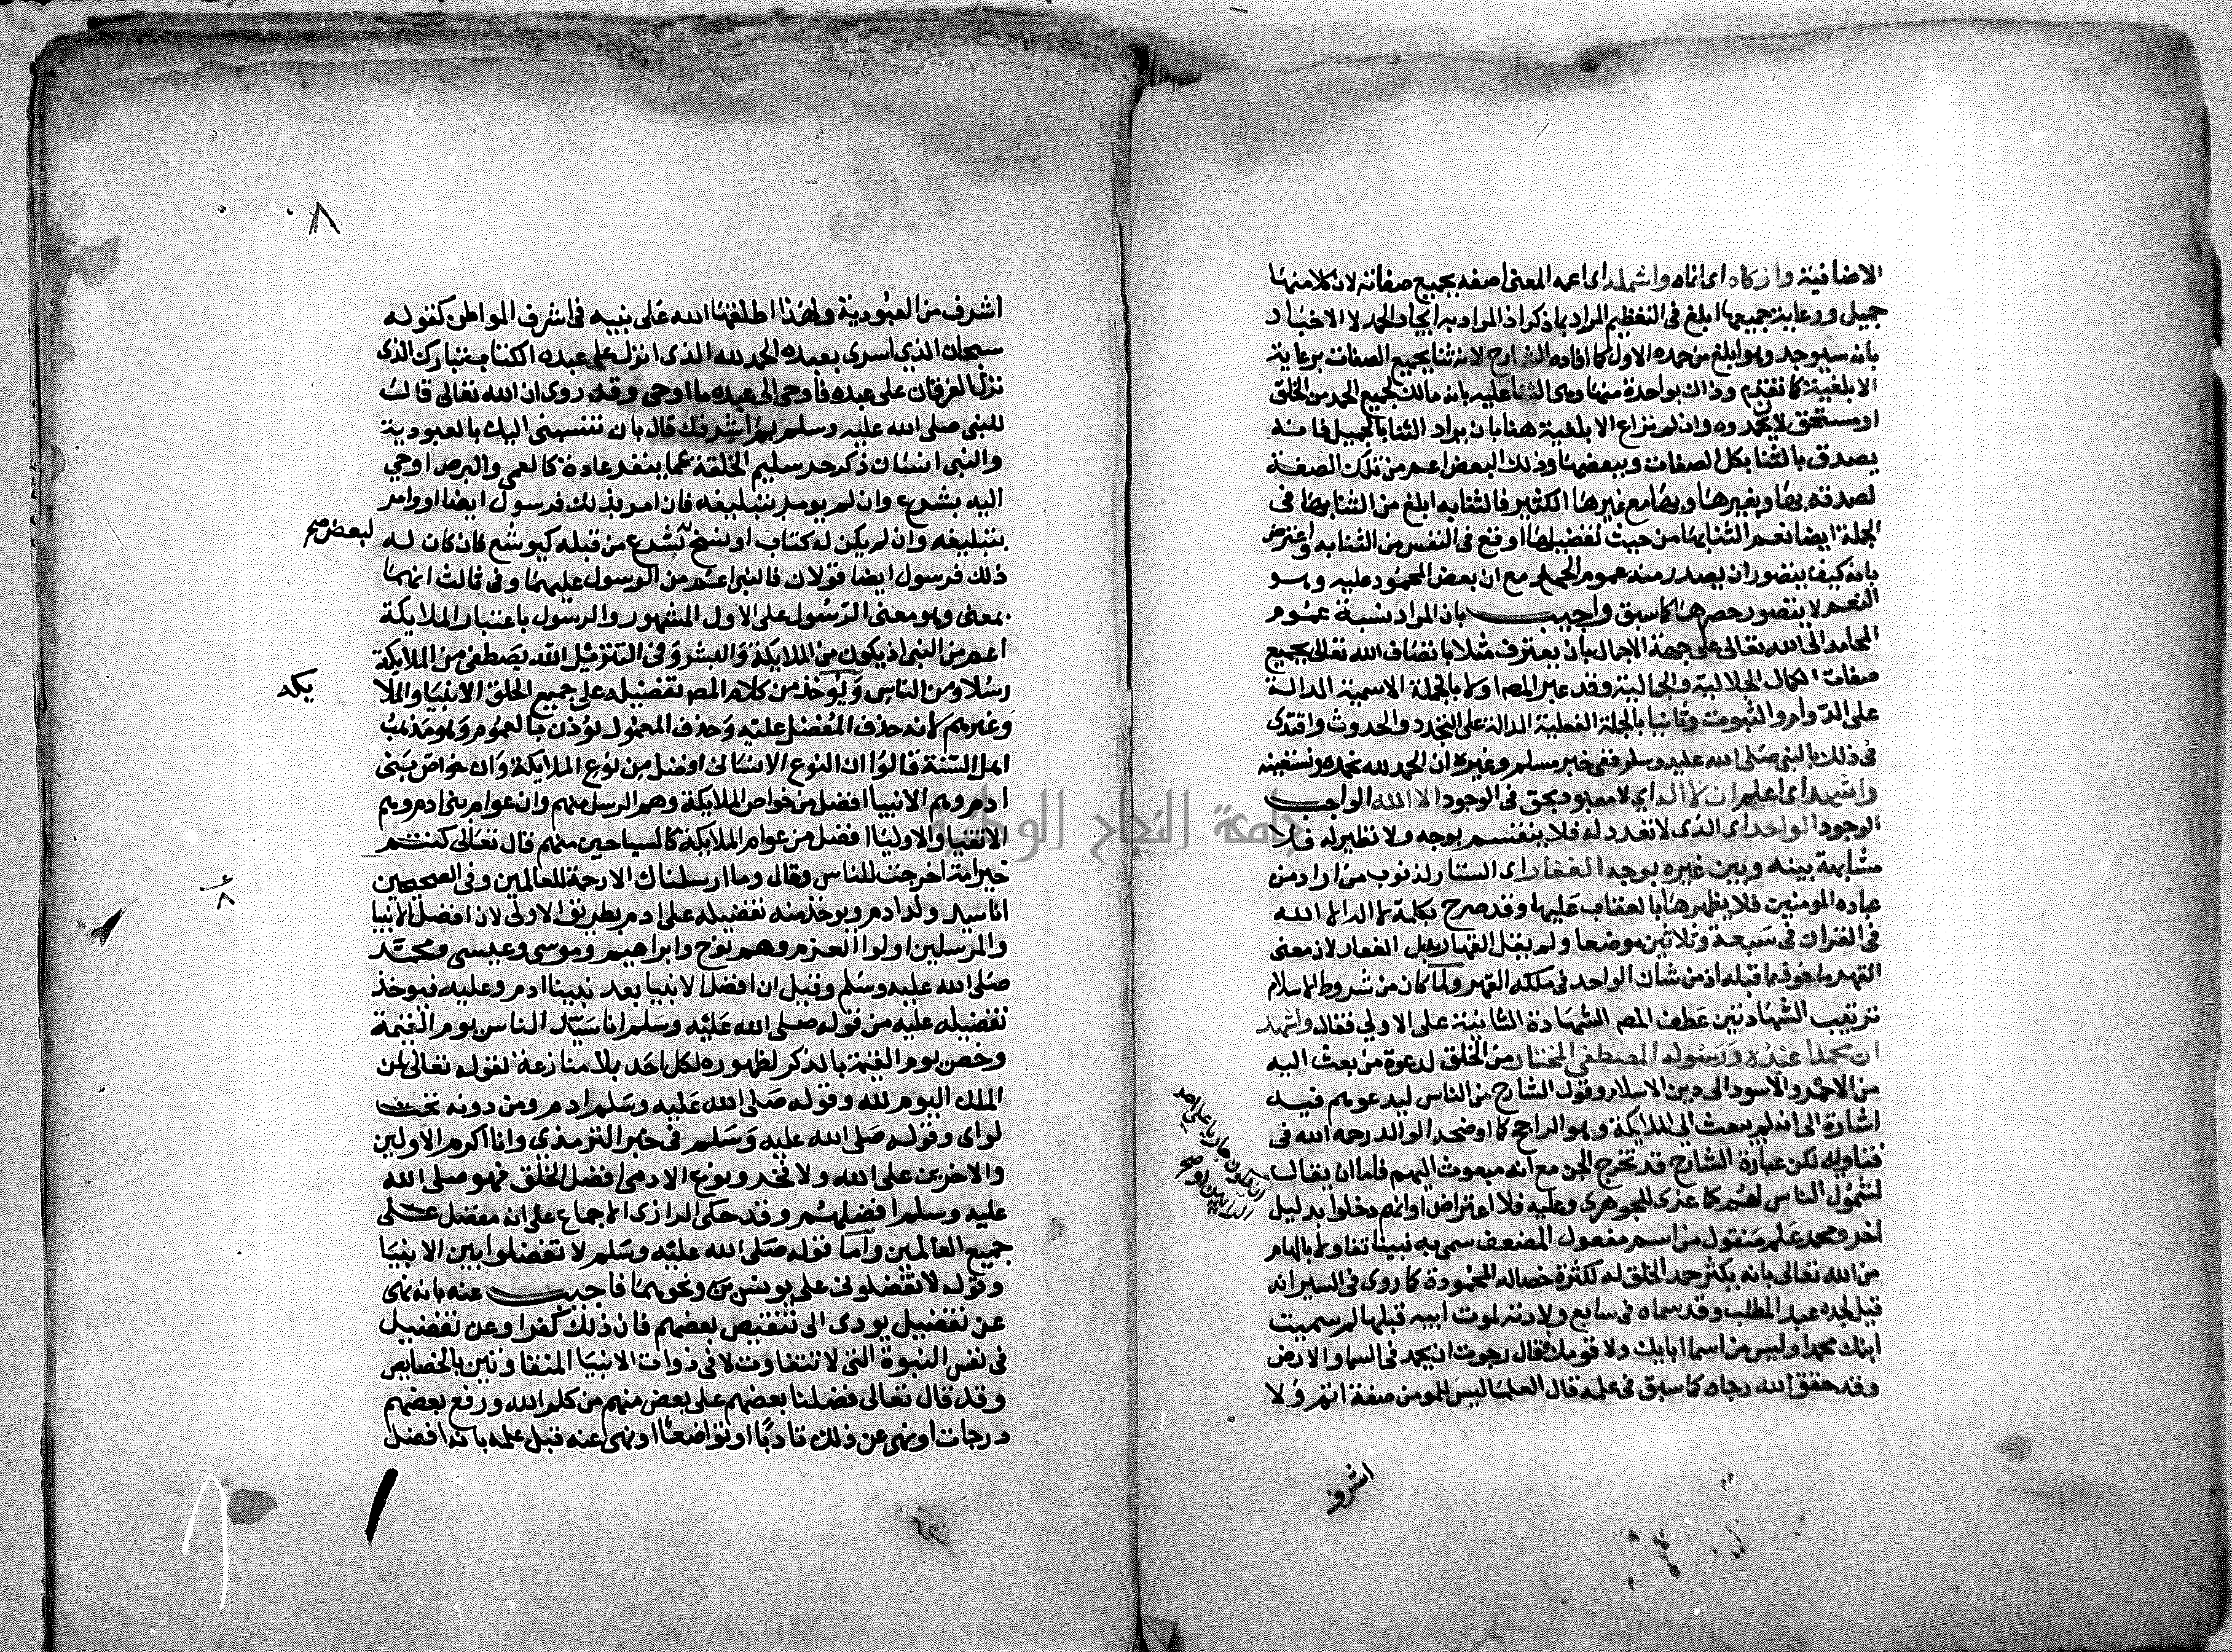 الاضافية وازكاه اى انماه واشمله اى اعمه المعنى اصفه بجميع صفاته لان كلا منها
جميل ورعاية جميعها ابلغ فى التعظيم المراد بما ذكر اذ المراد به ايجاد الحمد لا الاخبار
بانه سيوجد وهو ابلغ من حمده الاول كما افاده الشارح لانه ثنا بجميع الصفات برعاية
الابلغية كما تقدم وذاك بواحدة منها وهى الثنا عليه بانه مالك لجميع الحمد من الخلق
او مستحق لان يحمدوه وان لم نراع الابلغية هنا بان يراد الثنا بالجميل فامنه
يصدق بالثنا بكل الصفات وببعضها وذلك البعض اعم من تلك الصفة
لصدقه بها وبغيرها وبها مع غيرها الكثير فالثنا به ابلغ من الثنا بها فى
الجملة ايضا نعم الثنا بها من حيث تفضيلها اوقع فى النفس من الثنا به واعترض
بانه كيف يتصور ان يصدر منه عموم الحمد مع ان بعض المحمود عليه وهو
النعم لا يتصور حصرها كما سبق واجيب بان المراد نسبة عموم
المحامد الى الله تعالى على جهة الاجمال بان يعترف مثلا باتصاف الله تعالى بجميع
صفات الكمال الجلالية والجمالية وقد عبر المص اولا بالجملة الاسمية الدالة
على الدوام والثبوت وثانيا بالجملة الفعلية الدالة على التجدد والحدوث واقتدى
فى ذلك بالنبى صلى الله عليه وسلم ففى خبر مسلم وغيره ان الحمد لله نحمده ونستعينه
واشهد اى اعلم ان لا اله اى لا معبود بحق فى الوجود الا الله الواجب
الوجود الواحد اى الذى لا تعدد له فلا ينقسم بوجه ولا نظير له فلا
مشابهة بينه وبين غيره بوجه الغفار اى الستار لذنوب من اراد من
عباده المومنين فلا يظهرها بالعقاب عليها وقد صرح بكلمة لا اله الا الله
فى القران فى سبعة وثلاثين موضعا ولم يقل القهار بدل الغفار لان معنى
القهر ماخوذ مما قبله اذ من شان الواحد فى ملكه القهر ولما كان من شروط الاسلام
ترتيب الشهادتين عطف المص الشهادة الثانية على الاولى فقال واشهد
ان محمدا عبده ورسوله المصطفى المختار من الخلق لدعوة من بعث اليه
من الاحمر والاسود الى دين الاسلام وقول الشارح من الناس ليدعوهم فيه
اشارة الى انه لم يبعث الى الملايكة وهو الراجح كما اوضحه الوالد رحمه الله فى
فتاويه لكن عبارة الشارح قد تخرج الجن مع انه مبعوث اليهم فاما ان يقال
لشمول الناس لهم كما عزى للجوهرى وعليه فلا اعتراض او انهم دخلوا بدليل
اخر ومحمد علم منقول من اسم مفعول المضعف سمى به نبينا تفاولا بالهام
من الله تعالى بانه يكثر حمد الخلق له لكثرة خصاله المحمودة كما روى فى السير انه
قيل لجده عبد المطلب وقد سماه فى سابع ولادته لموت ابيه قبلها لم سميت
ابنك محمدا وليس من اسما ابايك ولا قومك فقال رجوت ان يحمد فى السما والارض
وقد حقق الله رجاه كما سبق فى علمه قال العلما ليس للمومن صفة اتم ولا
اشرف
٨
اشرف من العبودية ولهذا اطلقها الله على نبيه فى اشرف المواطن كقوله
سبحان الذي اسرى بعبده الحمد لله الذى انزل على عبده الكتاب تبارك الذى
نزل الفرقان على عبده فاوحى الى عبده ما اوحى وقد روى ان الله تعالى قال
للنبى صلى الله عليه وسلم بم اشرفك قال بان تنسبنى اليك بالعبودية
والنبى انسان ذكر حر سليم الخلقة عما ينفر عادة كالعمى والبرص اوحي
اليه بشرع وان لم يومر بتبليغه فان امر بذلك فرسول ايضا او وامر
بتبليغه وان لم يكن له كتاب او نسخ لشرع من قبله كيوشع فان كان له
لبعض صح
ذلك فرسول ايضا قولان فالنبى اعم من الرسول عليهما وفى ثالث انهما
بمعنى وهو معنى الرسول على الاول المشهور والرسول باعتبار الملايكة
اعم من النبى اذ يكون من الملايكة والبشر وفى التنزيل الله يصطفى من الملايكة
رسلا ومن الناس ويوخذ من كلام المص تفضيله على جميع الخلق الانبيا والملا
يكه
وغيرهم لانه حذف المفضل عليه وحذف المعمول يؤذن بالعموم وهو مذهب
اهل السنة قالوا ان النوع الانسانى افضل من نوع الملايكة وان خواص بنى
ادم وهم الانبيا افضل من خواص الملايكة وهم الرسل منهم وان عوام بنى ادم وهم
الاتقيا والاوليا افضل من عوام الملايكة كالسياحين منهم قال تعالى كنتم
خير امة اخرجت للناس وقال وما ارسلناك الا رحمة للعالمين وفى الصحيحين
انا سيد ولد ادم ويوخذ منه تفضيله على ادم بطريق الاولى لان افضل الانبيا
والمرسلين اولوا العزم وهم نوح وابراهيم وموسى وعيسى ومحمد
صلى الله عليه وسلم وقيل ان افضل الانبيا بعد نبينا ادم وعليه فيوخذ
تفضيله عليه من قوله صلى الله عليه وسلم انا سيد الناس يوم القيمة
وخص يوم القيمة بالذكر لظهوره لكل احد بلا منازعة لقوله تعالى لمن
الملك اليوم لله وقوله صلى الله عليه وسلم ادم ومن دونه تحت
لواى وقوله صلى الله عليه وسلم فى خبر الترمذى وانا اكرم الاولين
والاخرين على الله ولا فخر ونوع الادمى افضل الخلق فهو صلى الله
عليه وسلم افضلهم وقد حكى الرازى الاجماع على انه مفضل على
جميع العالمين واما قوله صلى الله عليه وسلم لا تفضلوا بين الانبيا
وقوله لا تفضلونى على يونس بن ونحوهما فاجيب عنه بانه نهى
عن تفضيل يودى الى تنقيص بعضهم فان ذلك كفر او عن تفضيل
فى نفس النبوة التى لا تتفاوت لا فى ذوات الانبيا المتفاوتين بالخصايص
وقد قال تعالى فضلنا بعضهم على بعض منهم من كلم الله ورفع بعضهم
درجات او نهى عن ذلك تادبا او تواضعا او نهى عنه قبل علمه بانه افضل
جامعة النجاح الوطنية